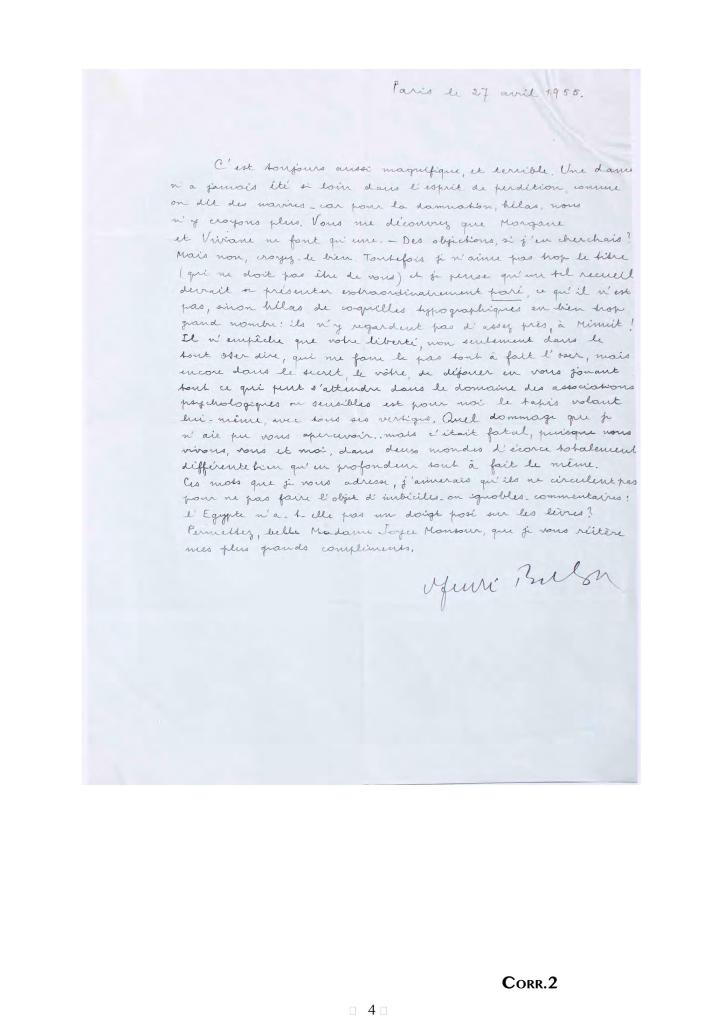 Paris le 27 avril 1955.
C'est toujours aussi magnifique, et terrible. Une dame
n'a jamais été si loin dans l'esprit de perdition, comme
on dit des navires - car pour la damnation, hélas, nous
n'y croyons plus. Vous me découvrez que Morgane
et Viviane ne font qu'une. - Des objections, si j'en cherchais?
Mais non, croyez-le bien. Toutefois je n'aime pas trop le titre
(qui ne doit pas être de vous) et je pense qu'un tel recueil
devrait se présenter extraordinairement paré, ce qu'il n'est
pas, sinon hélas de coquilles typographiques en bien trop
grand nombre: ils n'y regardent pas d'assez près, à Minuit!
Il n'empêche que votre liberté, non seulement dans le
tout oser dire, qui me fane le pas tout à fait l'oser, mais
encore dans le secret, le vôtre, de déjouer en vous jouant
tout ce qui peut s'attendre dans le domaine des associations
psychologiques ou sensibles est pour moi le tapis volant
lui-même, avec tous ses vertiges. Quel dommage que je
n'aie pu vous apercevoir.. mais c'était fatal, puisque nous
vivons, vous et moi, dans deux mondes d'écorce totalement
différente bien qu'en profondeur tout à fait le même.
Ces mots que je vous adresse, j'aimerais qu'ils ne circulent pas
pour ne pas faire l'objet d'imbéciles - ou ignobles - commentaires:
l'Egypte n'a-t-elle pas un doigt posé sur les lèvres?
Permettez, belle Madame Joyce Mansour, que je vous réitère
mes plus grands compliments.
CORR.2
4